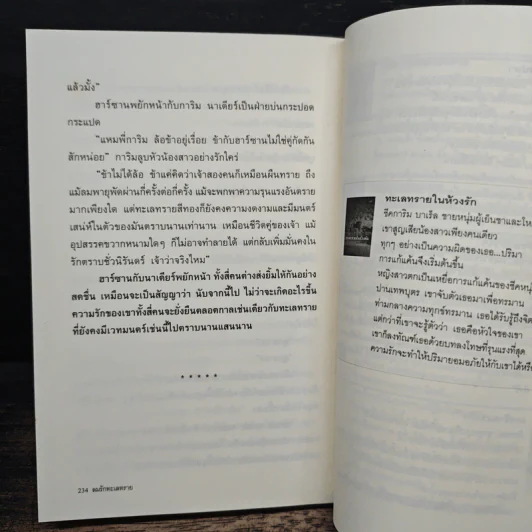 แล้วมั้ง"
ฮาร์ซานพยักหน้ากับการิม นาเดียร์เป็นฝ่ายบ่นกระปอด
กระแปด
"แหมพี่การิม ล้อข้าอยู่เรื่อย ข้ากับฮาร์ซานไม่ใช่คู่กัดกัน
สักหน่อย" การิมลูบหัวน้องสาวอย่างรักใคร่
"ข้าไม่ได้ล้อ ข้าแค่คิดว่าเจ้าสองคนก็เหมือนผืนทราย ถึง
แม้ลมพายุพัดผ่านกี่ครั้งต่อกี่ครั้ง แม้จะพกพาความรุนแรงอันตราย
มากเพียงใด แต่ทะเลทรายสีทองก็ยังคงความงดงามและมีมนตร์
เสน่ห์ในตัวของมันตราบนานเท่านาน เหมือนชีวิตคู่ของเจ้า แม้
อุปสรรคขวากหนามใดๆ ก็ไม่อาจทำลายได้ แต่กลับเพิ่มมั่นคงใน
รักตราบชั่วนิรันดร์ เจ้าว่าจริงไหม"
ฮาร์ซานกับนาเดียร์พยักหน้า ทั้งสี่คนต่างส่งยิ้มให้กันอย่าง
สดชื่น เหมือนจะเป็นสัญญาว่า นับจากนี้ไป ไม่ว่าจะเกิดอะไรขึ้น
ความรักของเขาทั้งสี่คนจะยั่งยืนตลอดกาลเช่นเดียวกับทะเลทราย
ที่ยังคงมีเวทมนตร์เช่นนี้ไปตราบนานแสนนาน
* * * * *
234 ลมรักทะเลทราย
ทะเลทรายในห้วงรัก
ชีคการิม บาเร็ล ชายหนุ่มผู้เย็นชาและให
เขาสูญเสียน้องสาวเพียงคนเดียว
ทุกๆ อย่างเป็นความผิดของเธอ...ปริมา
การแก้แค้นจึงเริ่มต้นขึ้น
หญิงสาวตกเป็นเหยื่อการแก้แค้นของชีคหนุ่
ปานเทพบุตร เขาจับตัวเธอมาเพื่อทรมาน
ท่ามกลางความทุกข์ทรมาน เธอได้รับรู้ถึงจิต
แต่กว่าที่เขาจะรู้ตัวว่า เธอคือหัวใจของเขา
เขาก็ลงทัณฑ์เธอด้วยบทลงโทษที่รุนแรงที่สุด
ความรักจะทำให้ปริมายอมอภัยให้กับเขาได้หรือ